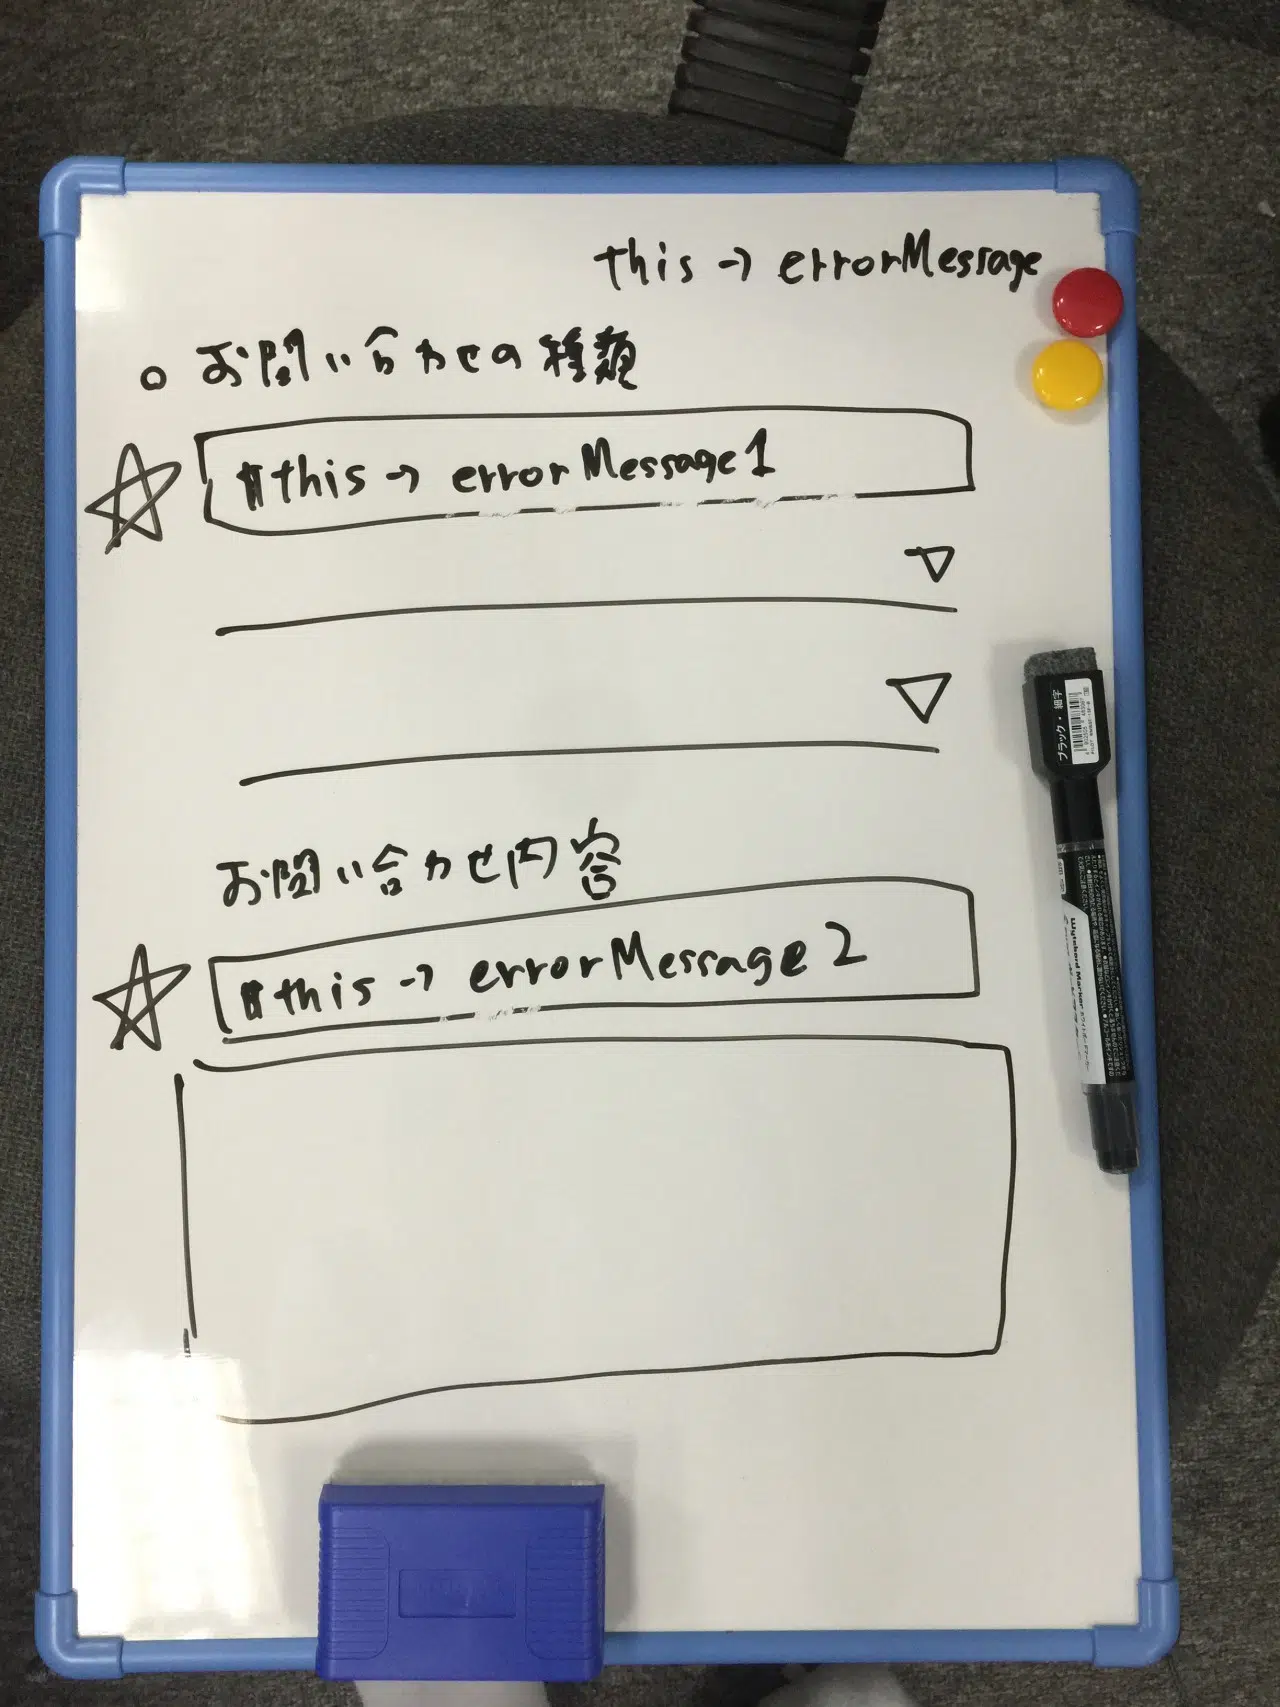 this → errorMessage
○ お問い合わせの種類
☆ #this → errorMessage1
▽
▽
お問い合わせ内容
☆ #this → errorMessage2
ブラック・細字
Whitebord Marker ホワイトボードマーカー